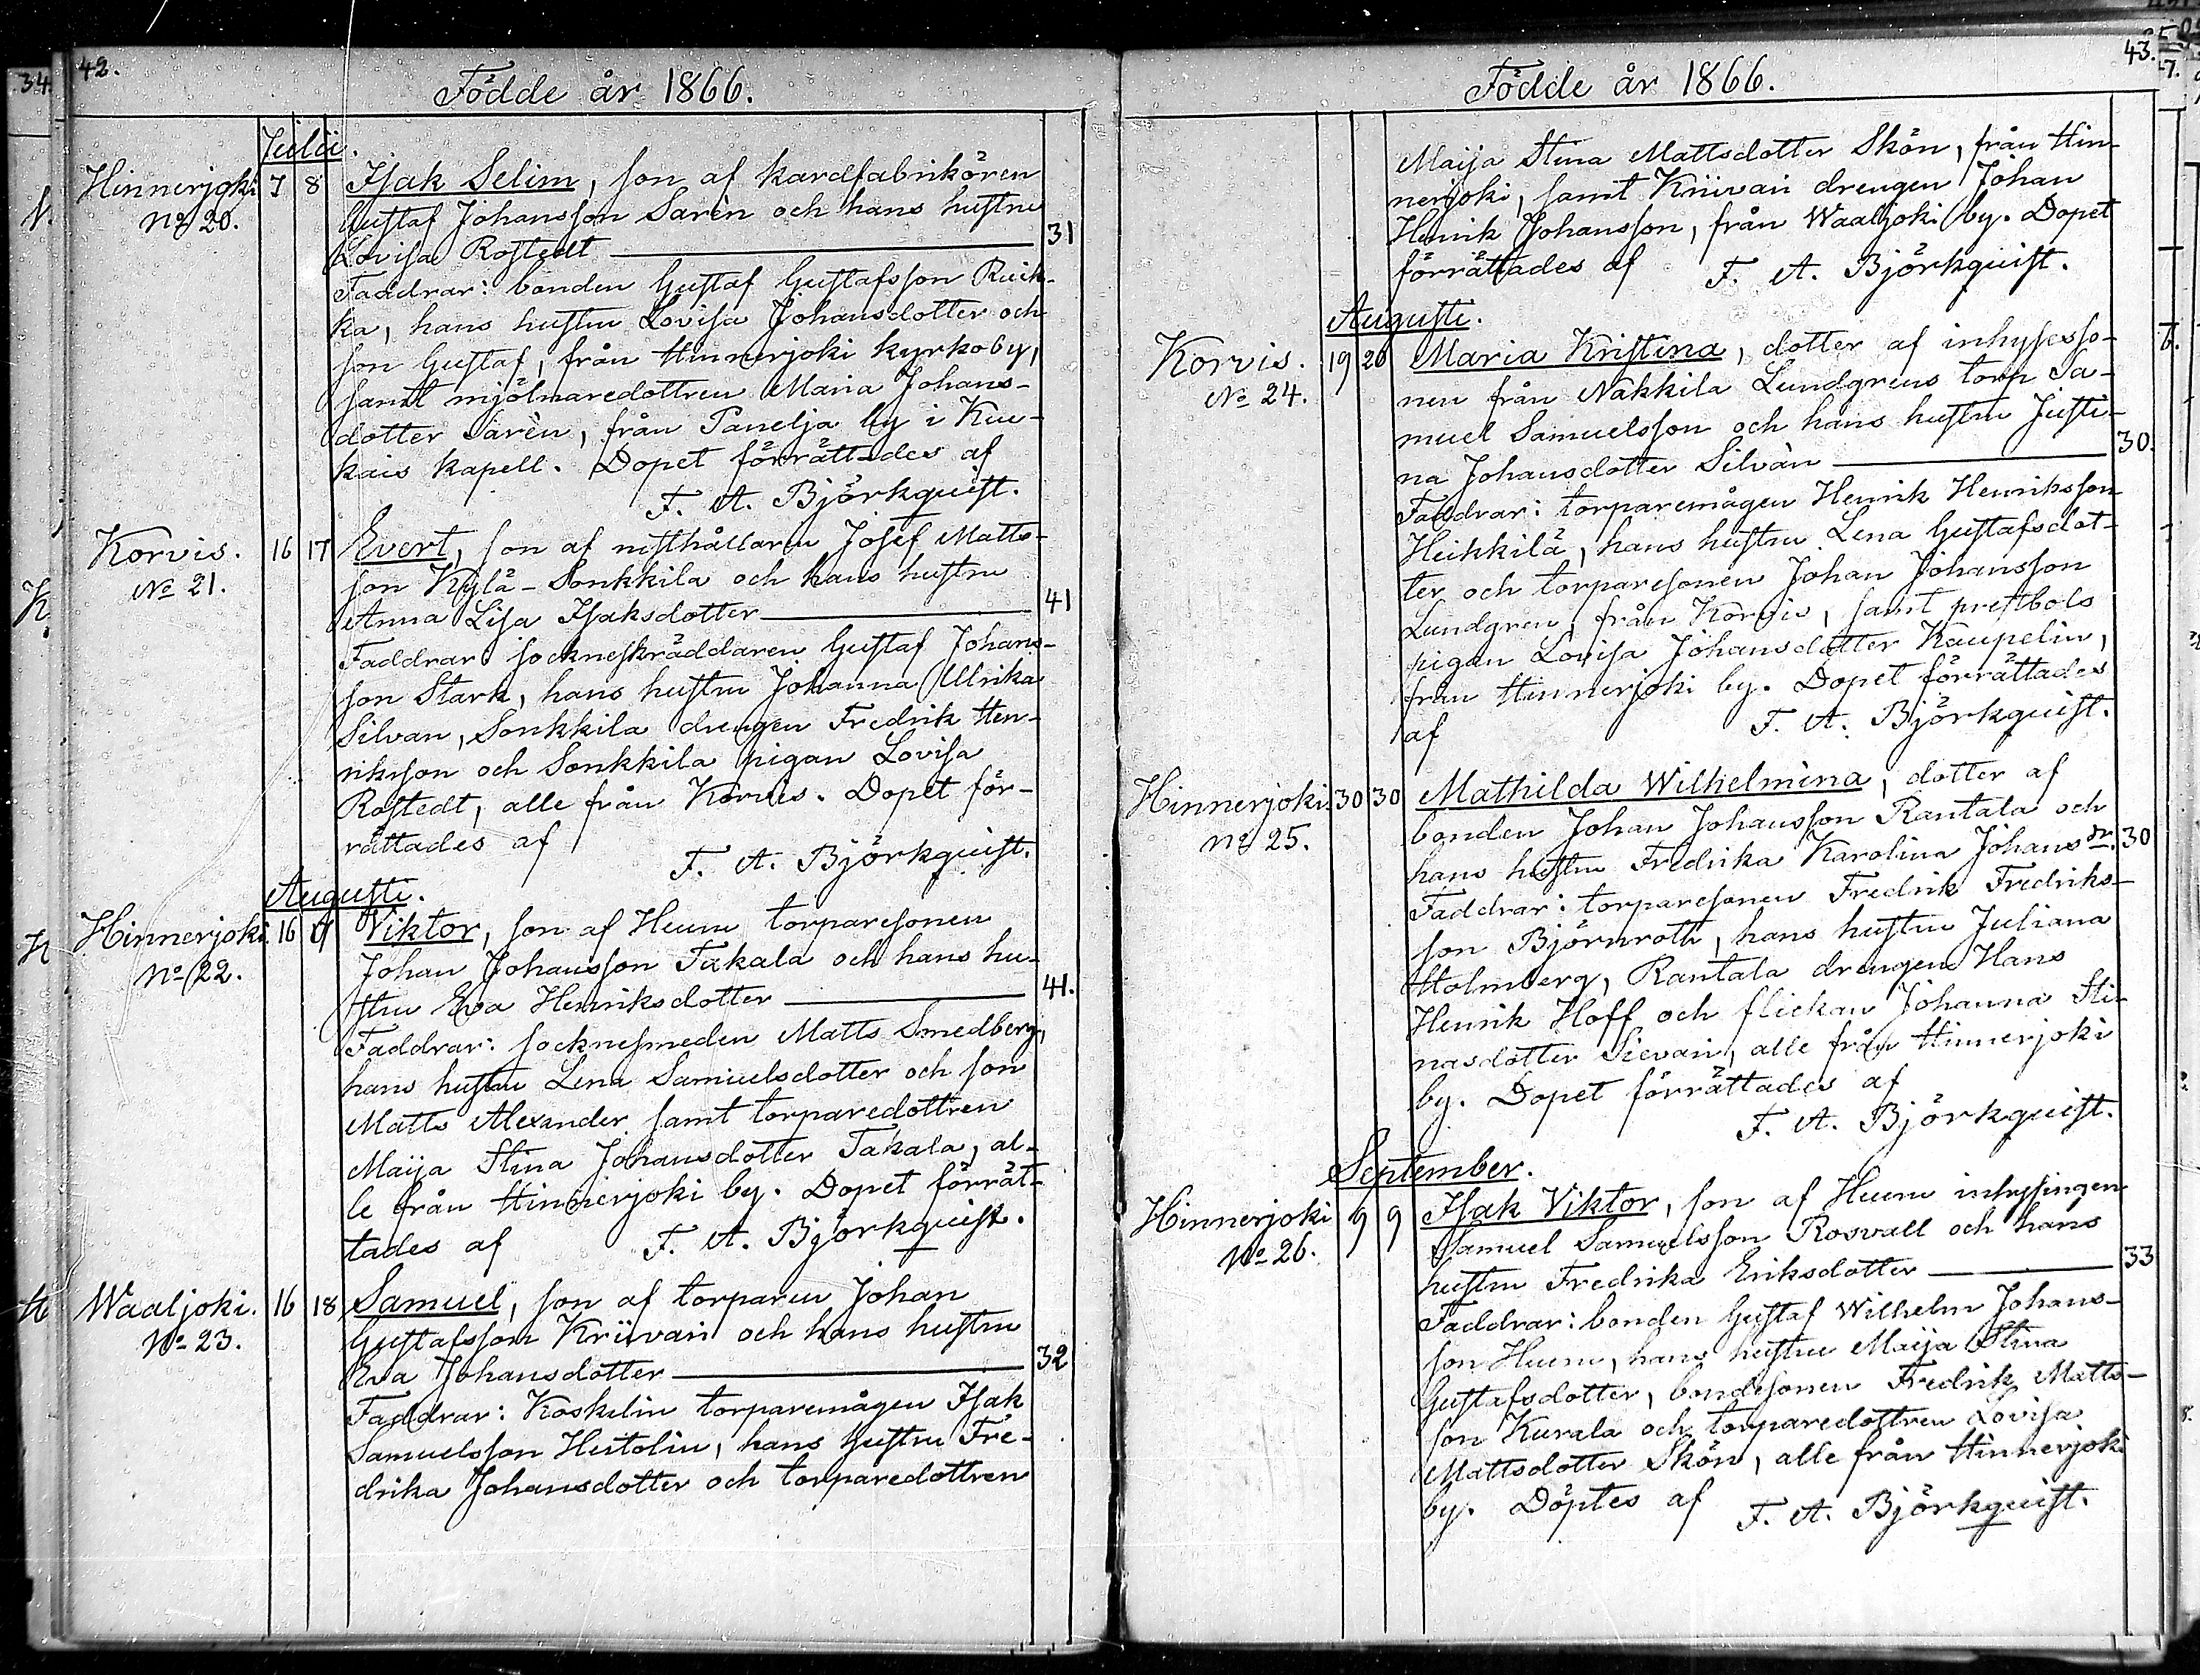 42.
Födde år 1866.
Julii.
Hinnerjoki 7 8 Isak Selim, son af kardfabrikören
No 20. Gustaf Johansson Sarèn och hans hustru
Lovisa Rostedt 31
Faddrar: bonden Gustaf Gustafsson Ruik-
ka, hans hustru Lovisa Johansdotter och
son Gustaf, från Hinnerjoki kyrkoby,
samt mjölnaredottren Maria Johans-
dotter Sarèn, från Panelja by i Kiu-
kais kapell. Dopet förrättades af
F. A. Björkquist.
Korvis. 16 17 Evert, son af rusthållaren Josef Matts-
No 21. son Kylä-Sonkkila och hans hustru
Anna Lisa Isaksdotter 41
Faddrar: sockneskräddaren Gustaf Johans-
son Stark, hans hustru Johanna Ulrika
Silvan, Sonkkila drengen Fredrik Hen-
riksson och Sonkkila pigan Lovisa
Rostedt, alle från Korvis. Dopet för-
rättades af
F. A. Björkquist.
Augusti.
Hinnerjoki 16 Viktor, son af Heum torparesonen
No 22. Johan Johansson Takala och hans hu-
stru Eva Henriksdotter 41.
Faddrar: socknesmeden Matts Smedberg,
hans hustru Lena Samuelsdotter och son
Matts Alexander samt torparedottren
Maija Stina Johansdotter Takala, al-
le från Hinnerjoki by. Dopet förrät-
tades af F. A. Björkquist.
Waaljoki. 16 18 Samuel, son af torparen Johan
No 23. Gustafsson Kriivari och hans hustru
Eva Johansdotter 32
Faddrar: Koskelin torparemågen Isak
Samuelsson Hutolin, hans hustru Fre-
drika Johansdotter och torparedottren
43.
Födde år 1866.
Maija Stina Mattsdotter Skön, från Hin-
nerjoki, samt Kriivari drengen Johan
Henrik Johansson, från Waaljoki by. Dopet
förrättades af F. A. Björkquist.
Augusti.
Korvis. 19 20 Maria Kristina, dotter af inhysesso-
No 24. nen från Nakkila Lundgrens torp Sa-
muel Samuelsson och hans hustru Justi-
na Johansdotter Silvàn 30.
Faddrar: torparemågen Henrik Henriksson
Heikkilä, hans hustru Lena Gustafsdot-
ter och torparesonen Johan Johansson
Lundgren, från Korvis, samt prestbols
pigan Lovisa Johansdotter Kaupelin,
från Hinnerjoki by. Dopet förrättades
af F. A. Björkquist.
Hinnerjoki 30 30 Mathilda Wilhelmina, dotter af
No 25. bonden Johan Johansson Rantala och
hans hustru Fredrika Karolina Johans dr. 30
Faddrar: torparesonen Fredrik Fredriks-
son Björnroth, hans hustru Juliana
Holmberg, Rantala drengen Hans
Henrik Hoff och flickan Johanna Sti-
nasdotter Sievari, alle från Hinnerjoki
by. Dopet förrättades af
F. A. Björkquist.
September.
Hinnerjoki 9 9 Isak Viktor, son af Heum inhysingen
No 26. Samuel Samuelsson Rosvall och hans
hustru Fredrika Eriksdotter 33
Faddrar: bonden Gustaf Wilhelm Johans-
son Heum, hans hustru Maija Stina
Gustafsdotter, bondesonen Fredrik Matts-
son Kurala och torparedottren Lovisa
Mattsdotter Skön, alle från Hinnerjoki
by. Döptes af F. A. Björkquist.